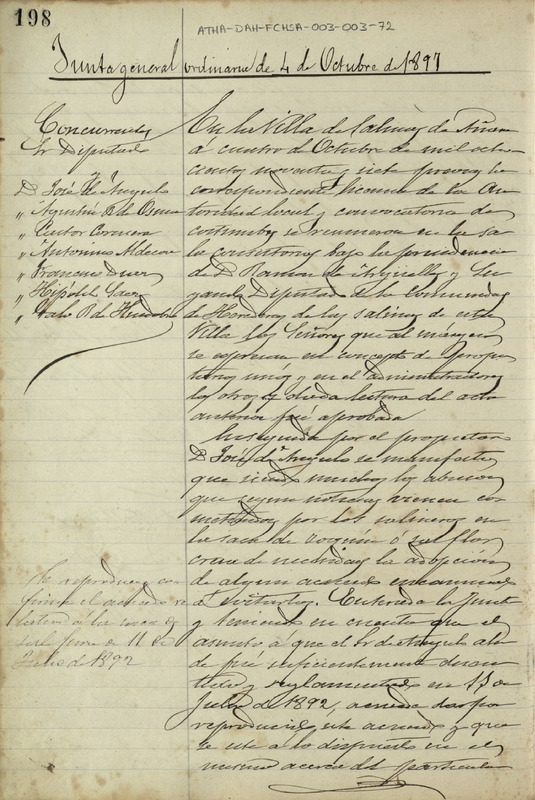 198
ATHA-DAH-FCHSA-003-003-72
Junta general ordinaria de 4 de Octubre de 1897
Concurrentes
Sr Diputado
D. José de Angulo
" Agustin P. de Osma
" Victor Cervera
" Antonino Aldecoa
" Francisco
" Hipólito Saez
" P. de
En la Villa de Salinas de Añana
á cuatro de Octubre de mil ocho
cientos noventa y siete previa la
correspondiente licencia de la Au
toridad local y convocatoria de
costumbre se reunieron en la sa
la consistorial bajo la presidencia
de D. Ramon de Se
gundo Diputado de la Comunidad
de Herederos de las salinas de esta
Villa los Señores que al márgen
se espresan en concepto de propie
tarios unos y en el de administradores
los otros y dada lectura del acta
anterior fué aprobada
En seguida por el propietario
D. José de Angulo se manifestó
que siendo muchos los abusos
que segun noticias vienen co
metiendose por los salineros en
la saca de ó sal flor
creia de necesidad la adopción
de algun acuerdo encaminado
á evitarlos. Enterada la Junta
y teniendo en cuenta que el
asunto á que el Sr. de Angulo alu
de fué suficientemente discu
tido y reglamentado en 11 de
Julio de 1892, acuerda dar por
reproducido este acuerdo y que
se esté a lo dispuesto en el
mismo acerca del particular
Se reproduce con
firma el acuerdo re
lativo á la saca de
sal flor de 11 de
Julio de 1892